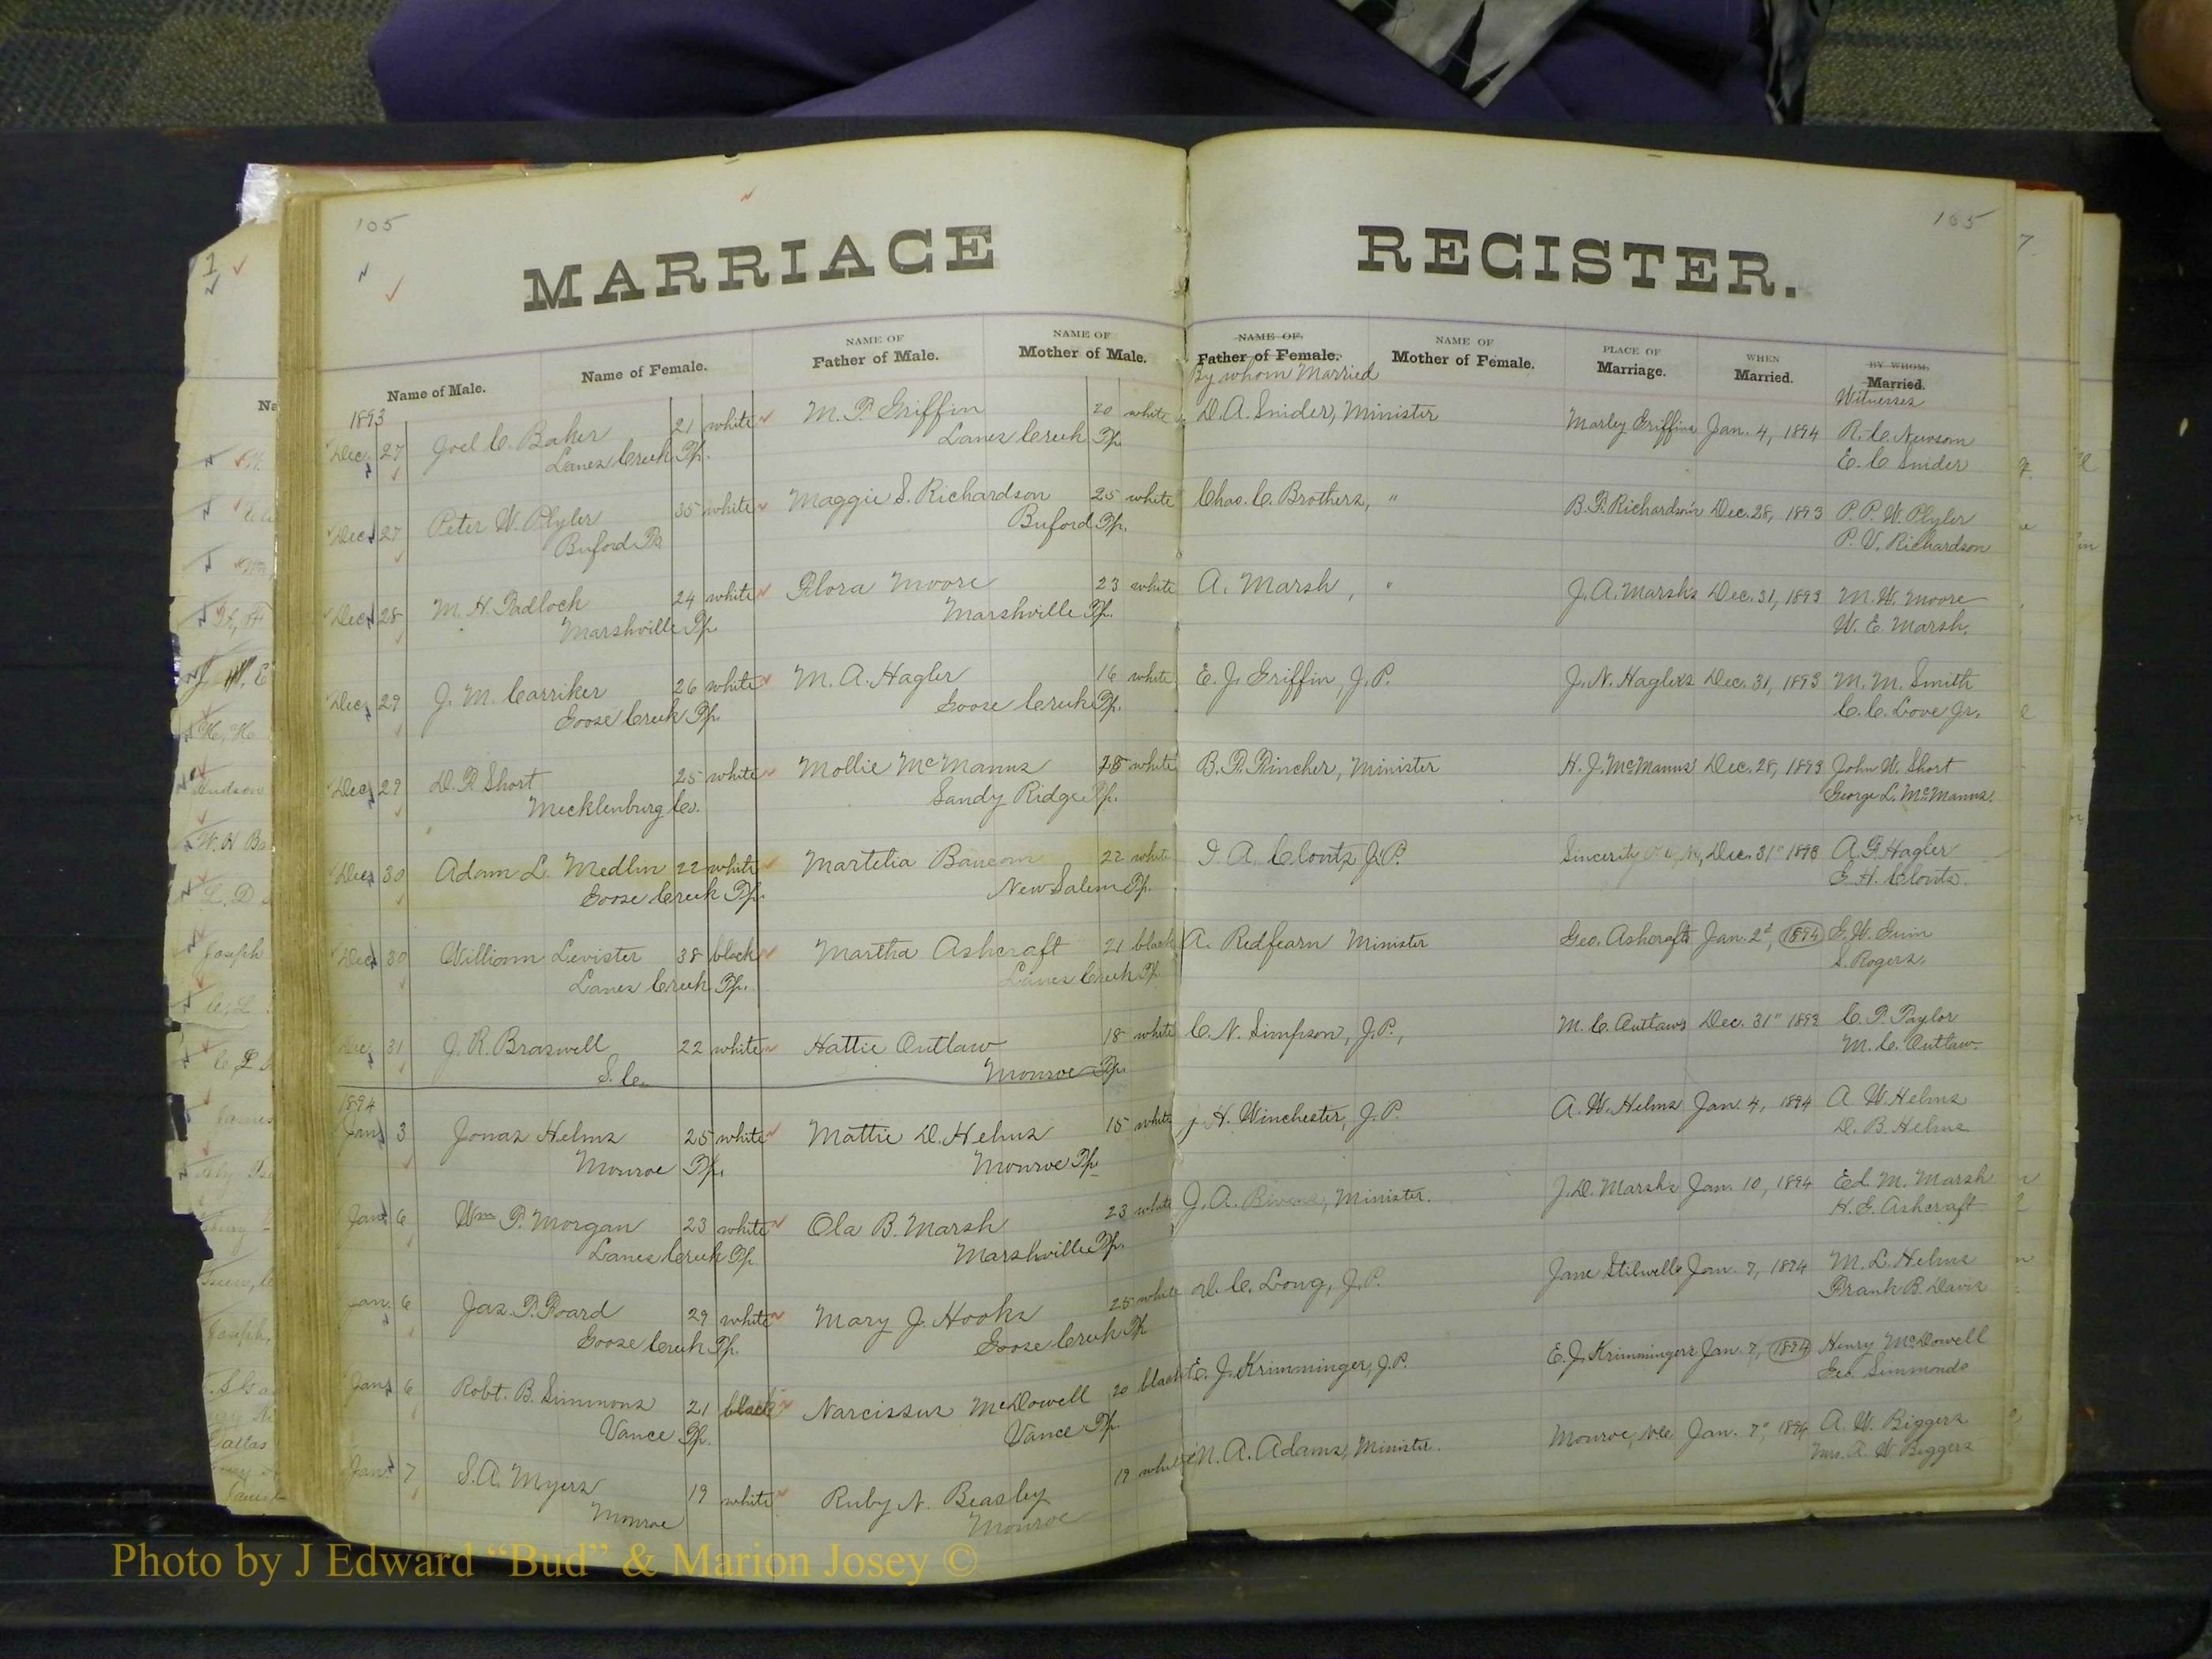 105
105
MARRIAGE REGISTER.
Name of Male.
Name of Female.
NAME OF
Father of Male.
NAME OF
Mother of Male.
NAME OF
Father of Female.
By whom Married
NAME OF
Mother of Female.
PLACE OF
Marriage.
WHEN
Married.
BY WHOM
Married.
Witnesses
1893
Dec. 27 Joel C. Baker 21 white M. F. Griffin 20 white D. A. Snider, Minister Marley Griffins Jan. 4, 1894 R. C. Newsom
Lanes Creek Tp. Lanes Creek Tp. E. C. Snider
Dec. 27 Peter W. Plyler 35 white Maggie S. Richardson 25 white Chas. C. Brothers, " B. F. Richardson's Dec. 28, 1893 P. P. W. Plyler
Buford Tp. Buford Tp. P. V. Richardson
Dec. 28 M. H. Tadlock 24 white Flora Moore 23 white A. Marsh, " J. A. Marsh's Dec. 31, 1893 M. W. Moore
Marshville Tp. Marshville Tp. W. E. Marsh.
Dec. 29 J. M. Carriker 26 white M. A. Hagler 16 white E. J. Griffin, J. P. J. N. Haglers Dec. 31, 1893 M. M. Smith
Goose Creek Tp. Goose Creek Tp. C. C. Love Jr.
Dec. 29 D. R. Short 25 white Mollie McManus 28 white B. F. Fincher, Minister H. J. McManus' Dec. 28, 1893 John W. Short
Mecklenburg Co. Sandy Ridge Tp. George L. McManus.
Dec. 30 Adam L. Medlin 22 white Martelia Baucom 22 white I. A. Clontz J. P. Sincerity Dec. 31" 1893 A. F. Hagler
Goose Creek Tp. New Salem Tp. E. H. Clontz.
Dec. 30 William Levister 38 black Martha Ashcraft 21 black A. Redfearn Minister Geo. Ashcrafts Jan. 2d, 1894 E. W. Guin
Lanes Creek Tp. Lanes Creek Tp. S. Rogers.
Dec. 31 J. R. Braswell 22 white Hattie Outlaw 18 white C. N. Simpson, J. P., M. C. Outlaws Dec. 31" 1893 C. T. Taylor
S. C. Monroe Tp. M. C. Outlaw
1894
Jan. 3 Jonas Helms 25 white Mattie D. Helms 15 white J. H. Winchester, J. P. A. W. Helms Jan 4, 1894 A. W. Helms
Monroe Tp. Monroe Tp. D. B. Helms
Jan. 6 Wm P. Morgan 23 white Ola B. Marsh 23 white J. A. Bivens, Minister. J. D. Marsh's Jan. 10, 1894 Ed. M. Marsh
Lanes Creek Tp. Marshville Tp. H. E. Ashcraft
Jan. 6 Jas. T. Foard 29 white Mary J. Hooks 25 white D. C. Long, J. P. Jane Stilwells Jan. 7, 1894 M. L. Helms
Goose Creek Tp. Goose Creek Tp Frank B. Davis
Jan. 6 Robt. B. Simmons 21 black Narcissus McDowell 20 black E. J. Krimminger, J. P. E. J. Krimmingers Jan. 7, 1894 Henry McDowell
Vance Tp. Vance Tp. Geo. Simmonds
Jan. 7 S. A. Myers 19 white Ruby N. Beasley 19 white N. A. Adams, Minister. Monroe, N.C. Jan. 7" 1894 A. W. Biggers
Monroe Monroe Mrs. A. W. Biggers
Photo by J Edward “Bud” & Marion Josey ©